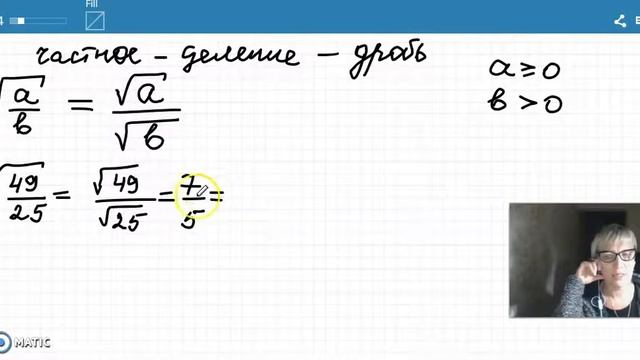 Fill
частное – деление – дробь
a ≥ 0
в > 0
√a/в = √a/√в
√49/25 = √49/√25 = 7/5 =
MATIC